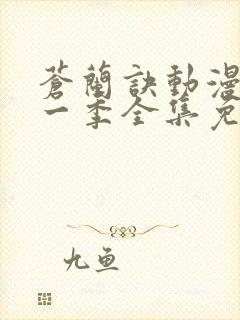 蒼蘭訣動漫
一季全集免
九鱼